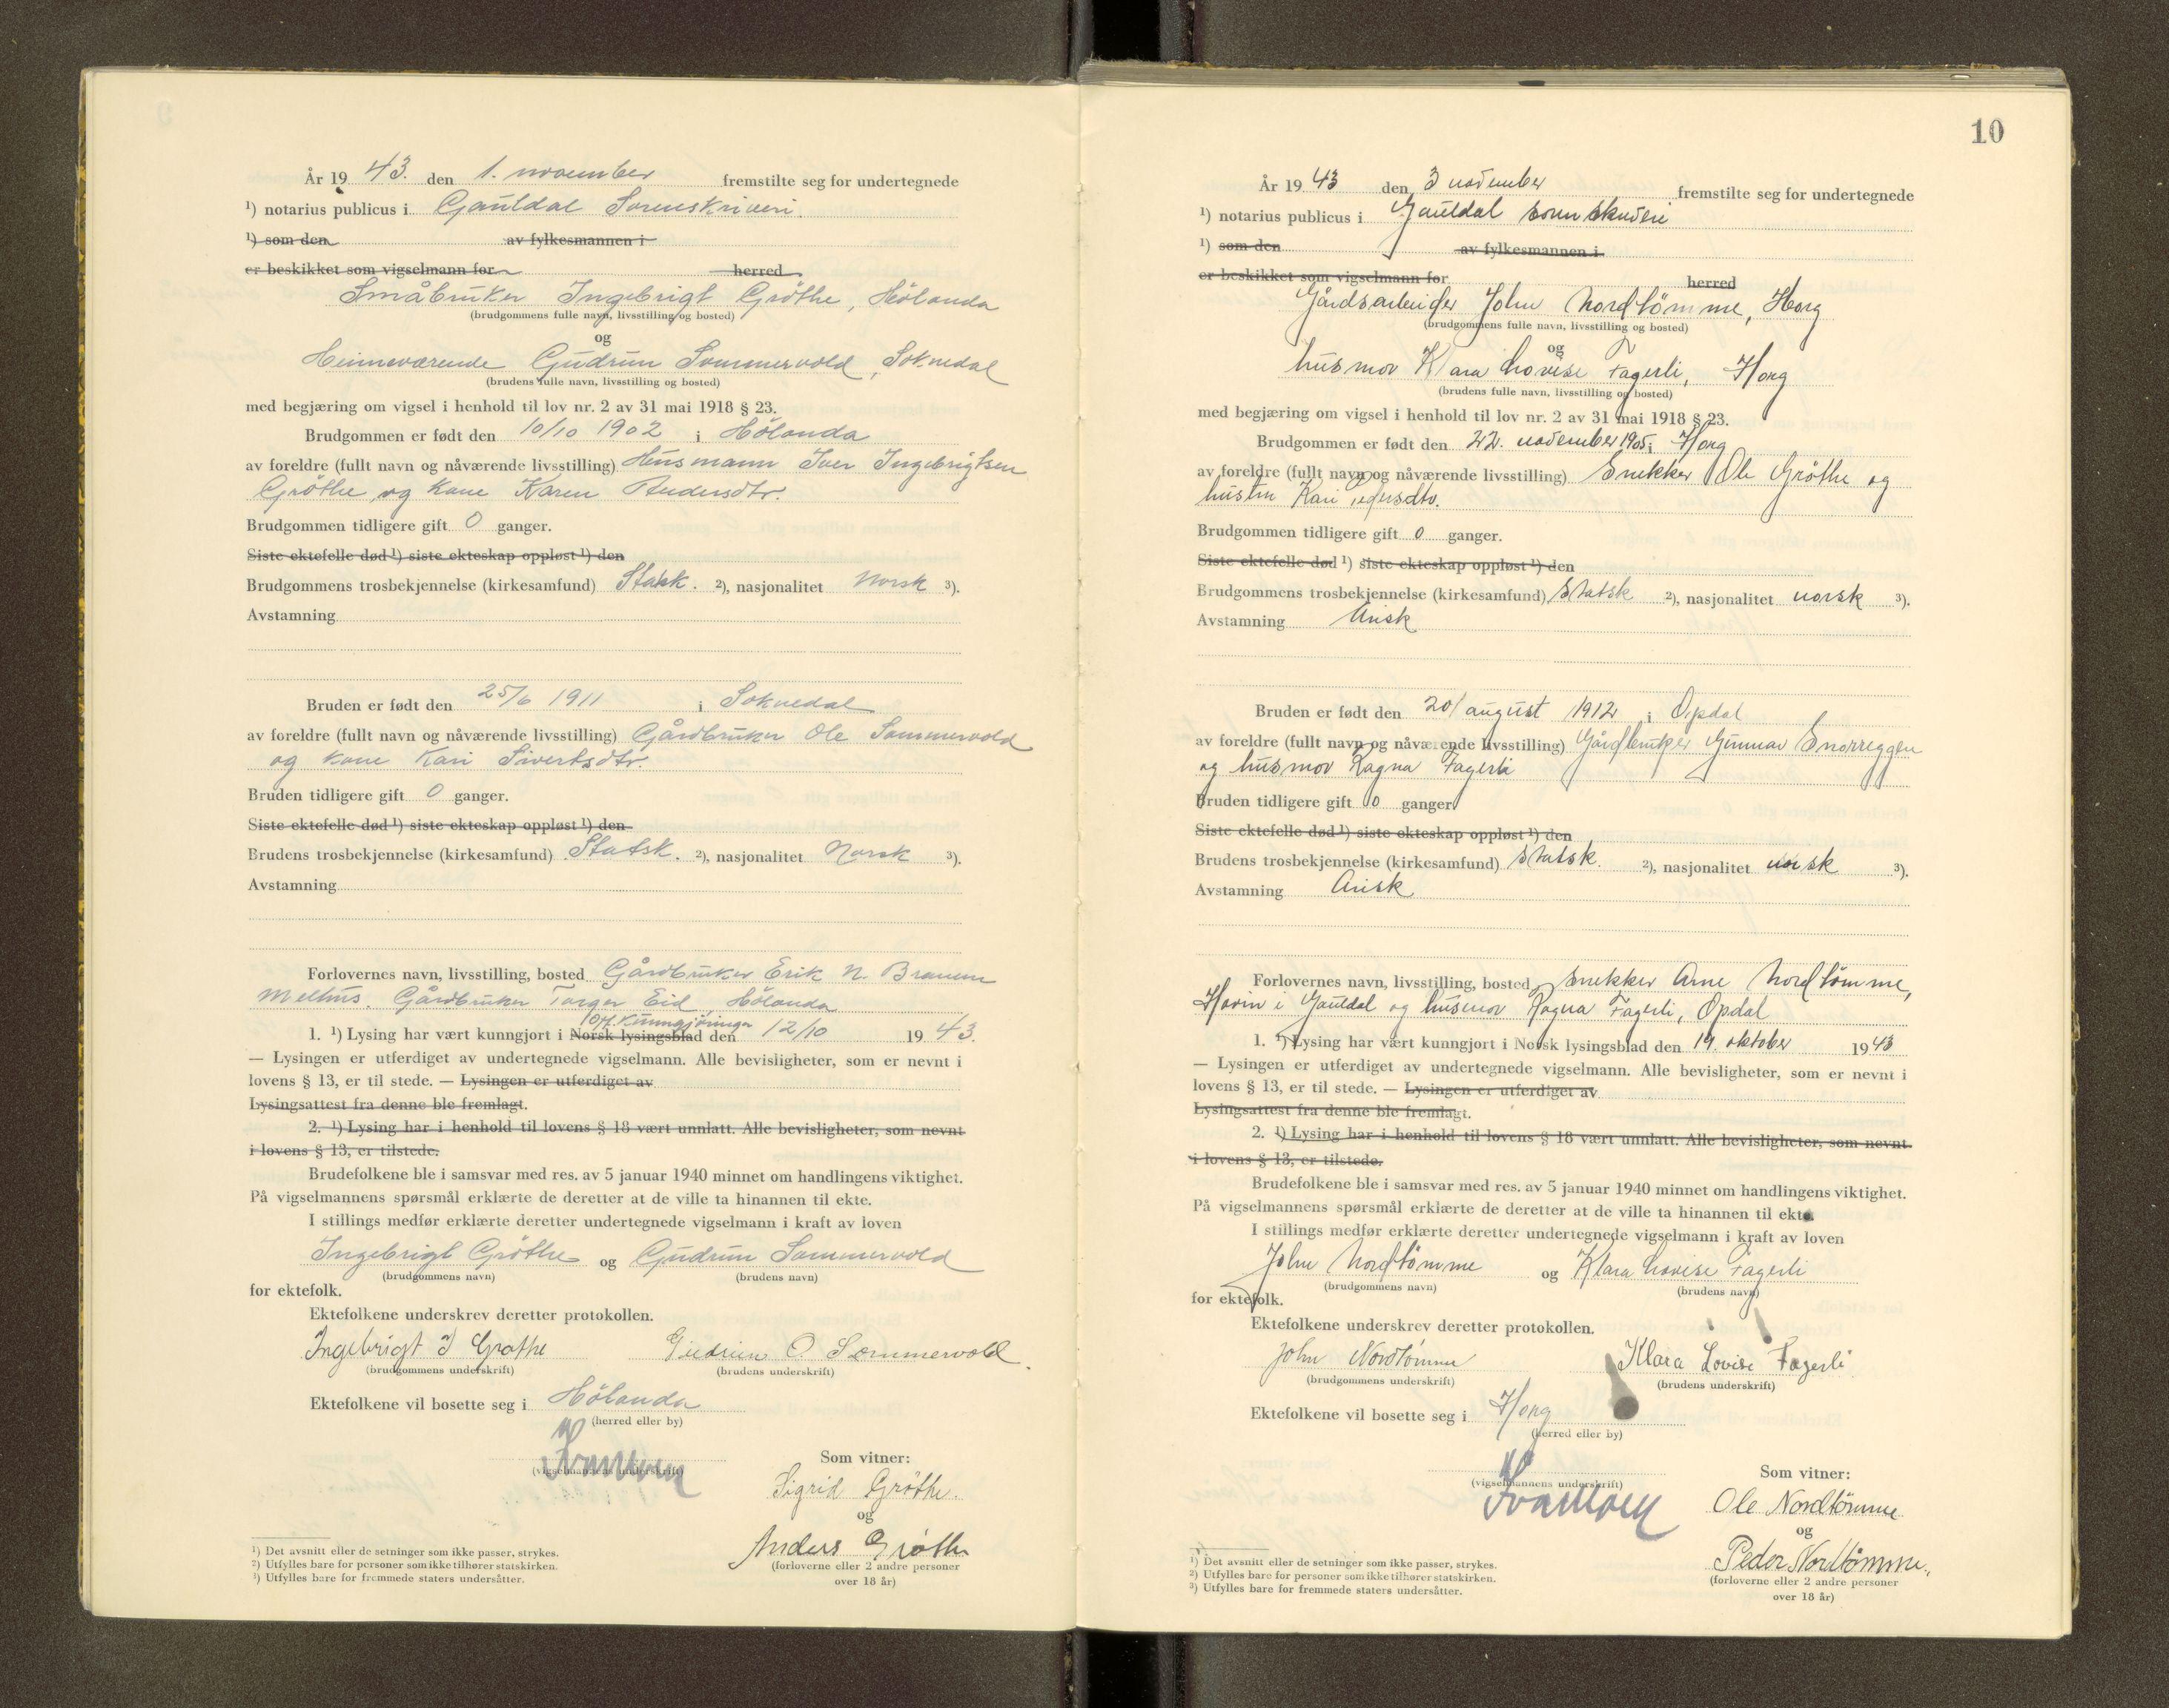 År 19 43. den 1. november fremstilte seg for undertegnede
¹) notarius publicus i Gauldal Sorenskriveri.
¹) som den av fylkesmannen i
er beskikket som vigselmann for herred
Småbruker Ingebrigt Gröthe, Hölanda
(brudgommens fulle navn, livsstilling og bosted)
og
Heimeværende Gudrun Sommervold, Soknedal
(brudens fulle navn, livsstilling og bosted)
med begjæring om vigsel i henhold til lov nr. 2 av 31 mai 1918 § 23.
Brudgommen er født den 10/10 1902 i Hölanda
av foreldre (fullt navn og nåværende livsstilling) Husmann Iver Ingebrigtsen
Gröthe og kone Karen Andersdtr.
Brudgommen tidligere gift 0 ganger.
Siste ektefelle død ¹) siste ekteskap oppløst ¹) den
Brudgommens trosbekjennelse (kirkesamfund) Statsk. ²), nasjonalitet Norsk ³).
Avstamning
Bruden er født den 25/6 1911 i Soknedal
av foreldre (fullt navn og nåværende livsstilling) Gårdbruker Ole Sommervold
og kone Kari Sivertsdtr.
Bruden tidligere gift 0 ganger.
Siste ektefelle død ¹) siste ekteskap oppløst ¹) den
Brudens trosbekjennelse (kirkesamfund) Statsk. ²), nasjonalitet Norsk ³).
Avstamning
Forlovernes navn, livsstilling, bosted Gårdbruker Erik N.
Melhus. Gårdbruker Torger Eid, Hölanda
1. ¹) Lysing har vært kunngjort i Norsk lysingsblad off. kunngjöringer den 12/10 19 43.
— Lysingen er utferdiget av undertegnede vigselmann. Alle bevisligheter, som er nevnt i
lovens § 13, er til stede. — Lysingen er utferdiget av
Lysingsattest fra denne ble fremlagt.
2. ¹) Lysing har i henhold til lovens § 18 vært unnlatt. Alle bevisligheter, som nevnt
i lovens § 13, er tilstede.
Brudefolkene ble i samsvar med res. av 5 januar 1940 minnet om handlingens viktighet.
På vigselmannens spørsmål erklærte de deretter at de ville ta hinannen til ekte.
I stillings medfør erklærte deretter undertegnede vigselmann i kraft av loven
Ingebrigt Gröthe og Gudrun Sommervold
(brudgommens navn) (brudens navn)
for ektefolk.
Ektefolkene underskrev deretter protokollen.
Ingebrigt I Grøthe Gudrun O. Sommervold.
(brudgommens underskrift) (brudens underskrift)
Ektefolkene vil bosette seg i Hölanda
(herred eller by)
(vigselmannens underskrift)
Som vitner:
Sigrid Grøthe.
og
Anders Grøthe
(forloverne eller 2 andre personer
over 18 år)
¹) Det avsnitt eller de setninger som ikke passer, strykes.
²) Utfylles bare for personer som ikke tilhører statskirken.
³) Utfylles bare for fremmede staters undersåtter.
10
År 19 43 den 3 november fremstilte seg for undertegnede
¹) notarius publicus i Gauldal sorenskriveri
¹) som den av fylkesmannen i
er beskikket som vigselmann for herred
Gårdsarbeider John Nordtömme, Horg
(brudgommens fulle navn, livsstilling og bosted)
og
husmor Klara Lovise Fagerli, Horg
(brudens fulle navn, livsstilling og bosted)
med begjæring om vigsel i henhold til lov nr. 2 av 31 mai 1918 § 23.
Brudgommen er født den 22. november 1905 i Horg
av foreldre (fullt navn og nåværende livsstilling) Snekker Ole Gröthe og
hustru Kari Pedersdtr.
Brudgommen tidligere gift 0 ganger.
Siste ektefelle død ¹) siste ekteskap oppløst ¹) den
Brudgommens trosbekjennelse (kirkesamfund) Statsk ²), nasjonalitet norsk ³).
Avstamning Arisk
Bruden er født den 20/ august 1912 i Opdal
av foreldre (fullt navn og nåværende livsstilling) Gårdbruker Gunnar Snoreggen
og husmor Ragna Fagerli
Bruden tidligere gift 0 ganger
Siste ektefelle død ¹) siste ekteskap oppløst ¹) den
Brudens trosbekjennelse (kirkesamfund) Statsk. ²), nasjonalitet norsk ³).
Avstamning Arisk
Forlovernes navn, livsstilling, bosted snekker Arne Nordtömme,
Hovin i Gauldal og husmor Ragna Fagerli, Opdal
1. ¹) Lysing har vært kunngjort i Norsk lysingsblad den 19. oktober 19 43
— Lysingen er utferdiget av undertegnede vigselmann. Alle bevisligheter, som er nevnt i
lovens § 13, er til stede. — Lysingen er utferdiget av
Lysingsattest fra denne ble fremlagt.
2. ¹) Lysing har i henhold til lovens § 18 vært unnlatt. Alle bevisligheter, som nevnt
i lovens § 13, er tilstede.
Brudefolkene ble i samsvar med res. av 5 januar 1940 minnet om handlingens viktighet.
På vigselmannens spørsmål erklærte de deretter at de ville ta hinannen til ekte.
I stillings medfør erklærte deretter undertegnede vigselmann i kraft av loven
John Nordtömme og Klara Lovise Fagerli
(brudgommens navn) (brudens navn)
for ektefolk.
Ektefolkene underskrev deretter protokollen.
John Nordtømme Klara Lovise Fagerli
(brudgommens underskrift) (brudens underskrift)
Ektefolkene vil bosette seg i Horg
(herred eller by)
(vigselmannens underskrift)
Som vitner:
Ole Nordtømme
og
Peder Nordtømme.
(forloverne eller 2 andre personer
over 18 år)
¹) Det avsnitt eller de setninger som ikke passer, strykes.
²) Utfylles bare for personer som ikke tilhører statskirken.
³) Utfylles bare for fremmede staters undersåtter.